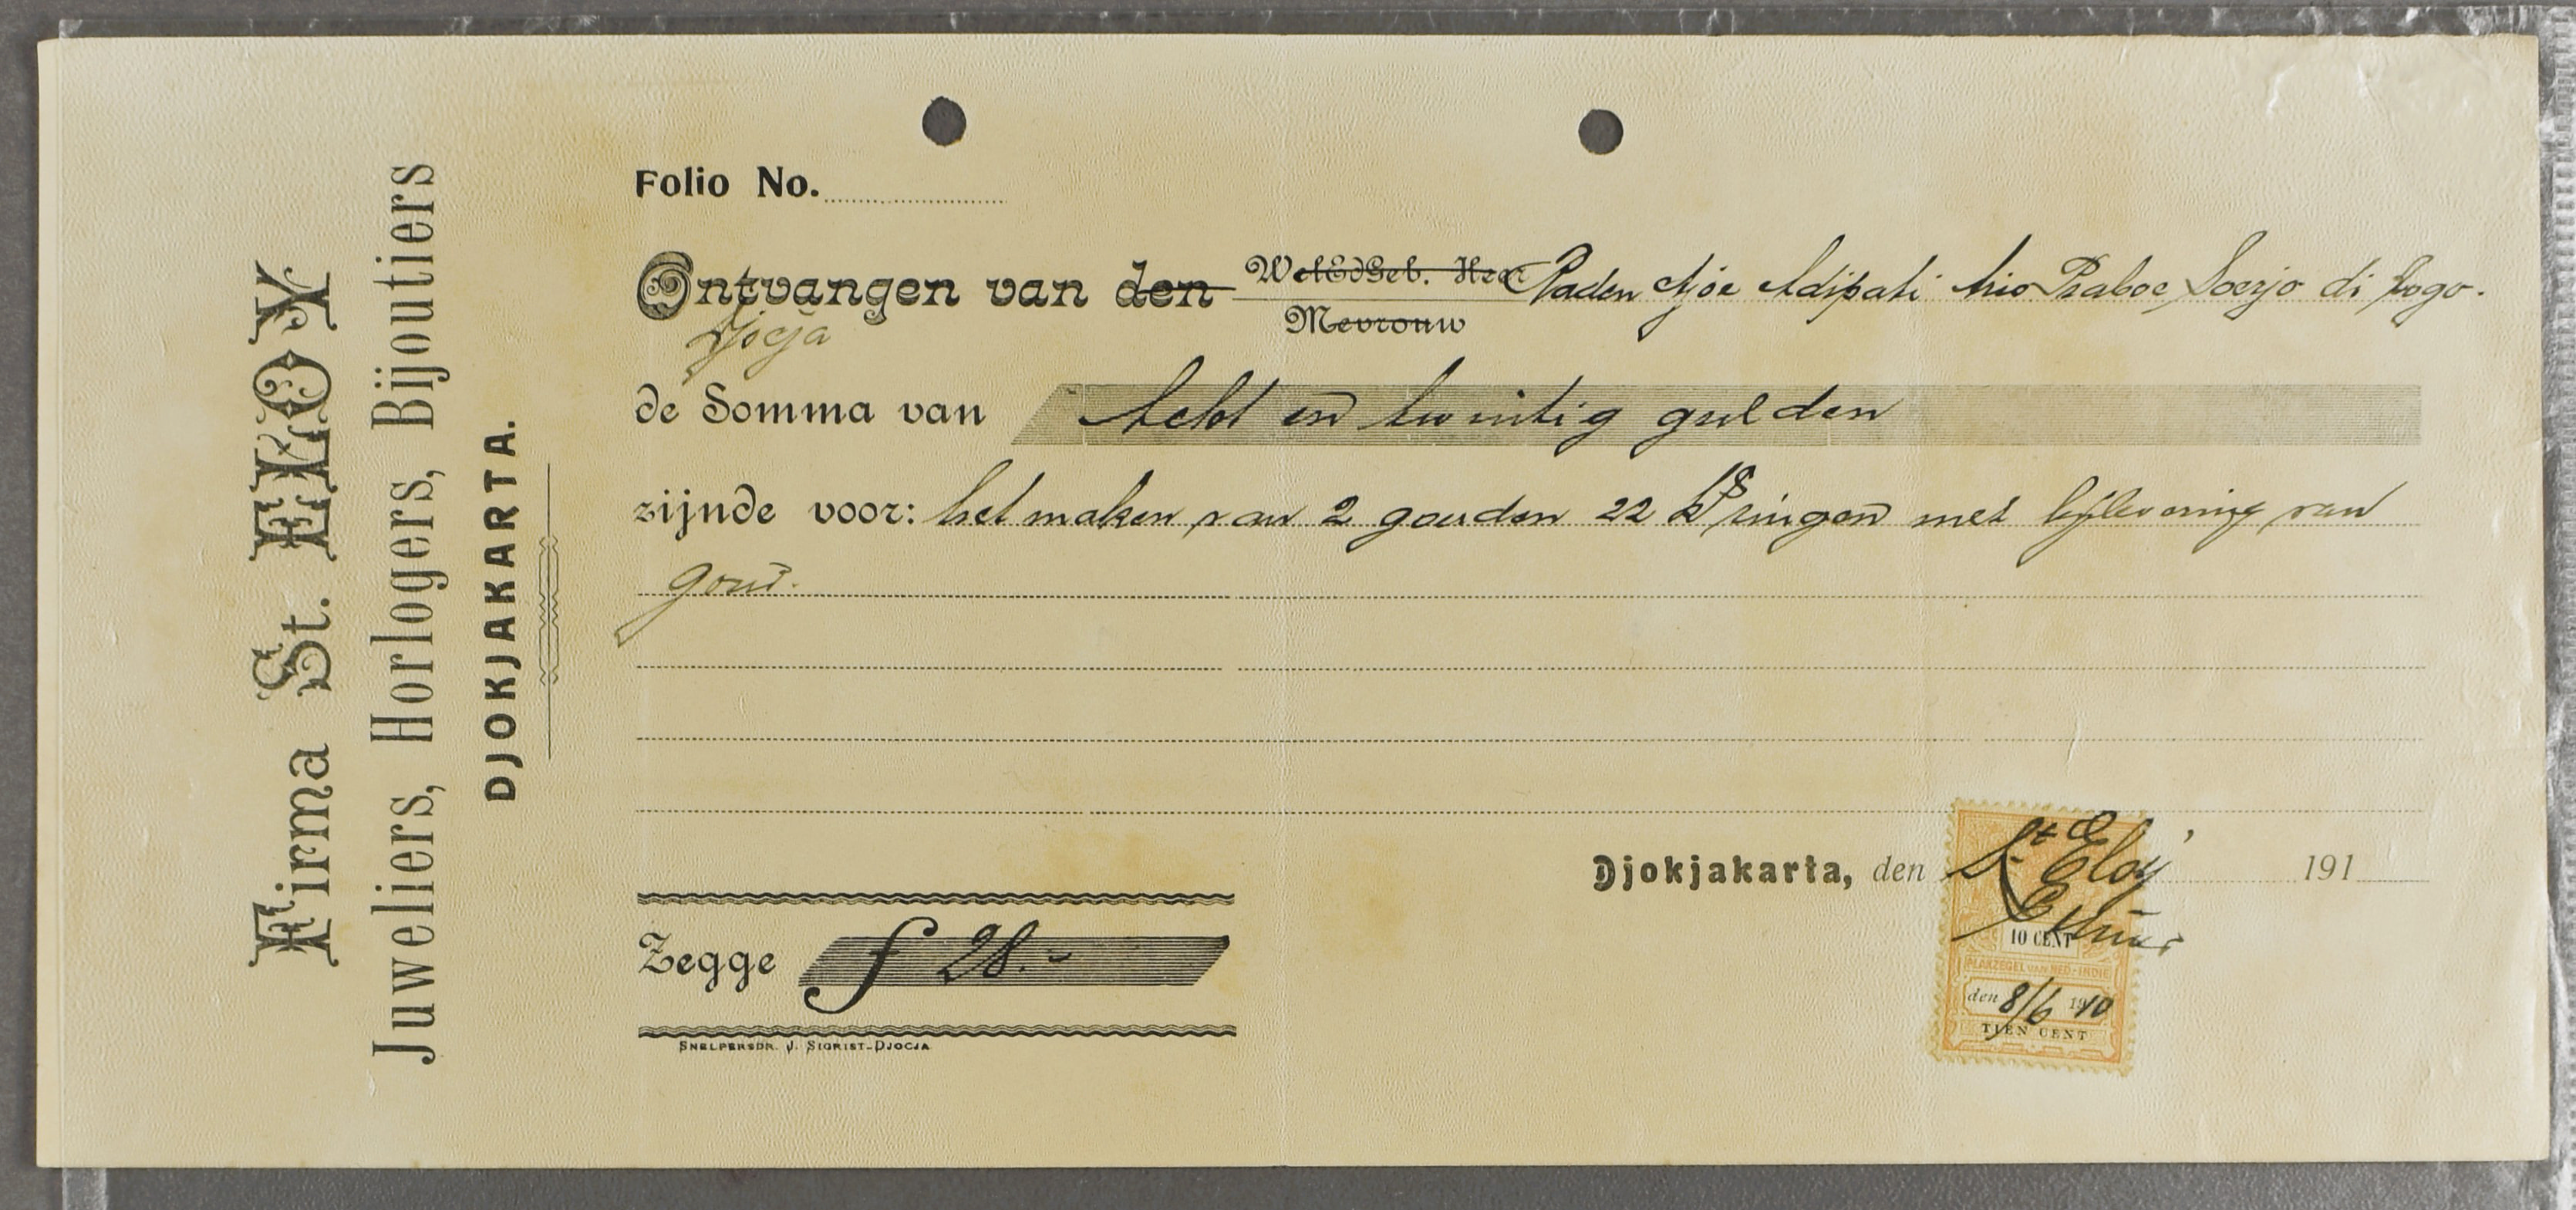 Firma St. ELOY
Juweliers, Horlogers, Bijoutiers
DJOKJAKARTA.
Folio No.
Ontvangen van den WelEdGeb. Heer Raden Adipati Ario Praboe Soerjo di logo.
Mevrouw
Djocja
de Somma van Acht en twintig gulden
zijnde voor: het maken van 2 gouden 22 kts ringen met bijlevering van
goud.
Djokjakarta, den 191
St Eloy
10 CENT
PLAKZEGEL VAN NED-INDIE
den 8/6 1910
TIEN CENT
Zegge f 28.-
SNELPERSDR. J. SIGRIST-DJOCJA